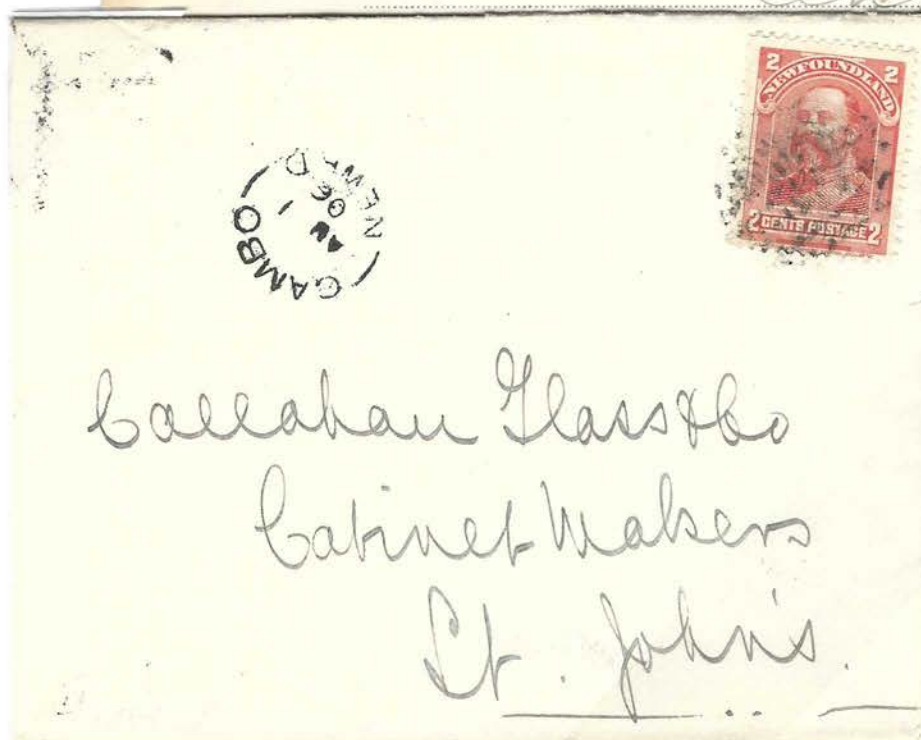 2 2
NEWFOUNDLAND
2 CENTS POSTAGE 2
GAMBO
AU 1
06
NEWF'D
Callahan Glass & Co
Cabinet Makers
St. John's.